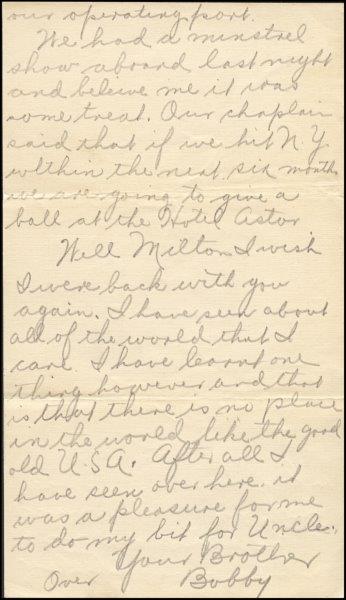 our operating port.
We had a minstrel
show aboard last night
and beleive me it was
some treat. Our chaplain
said that if we hit N.Y.
within the next six months
we are going to give a
ball at the Hotel Astor
Well Milton I wish
I were back with you
again. I have seen about
all of the world that I
care. I have learnt one
thing however and that
is that there is no place
in the world like the good
old U.S.A. After all I
have seen over here it
was a pleasure for me
to do my bit for Uncle.
Your Brother
Over Bobby